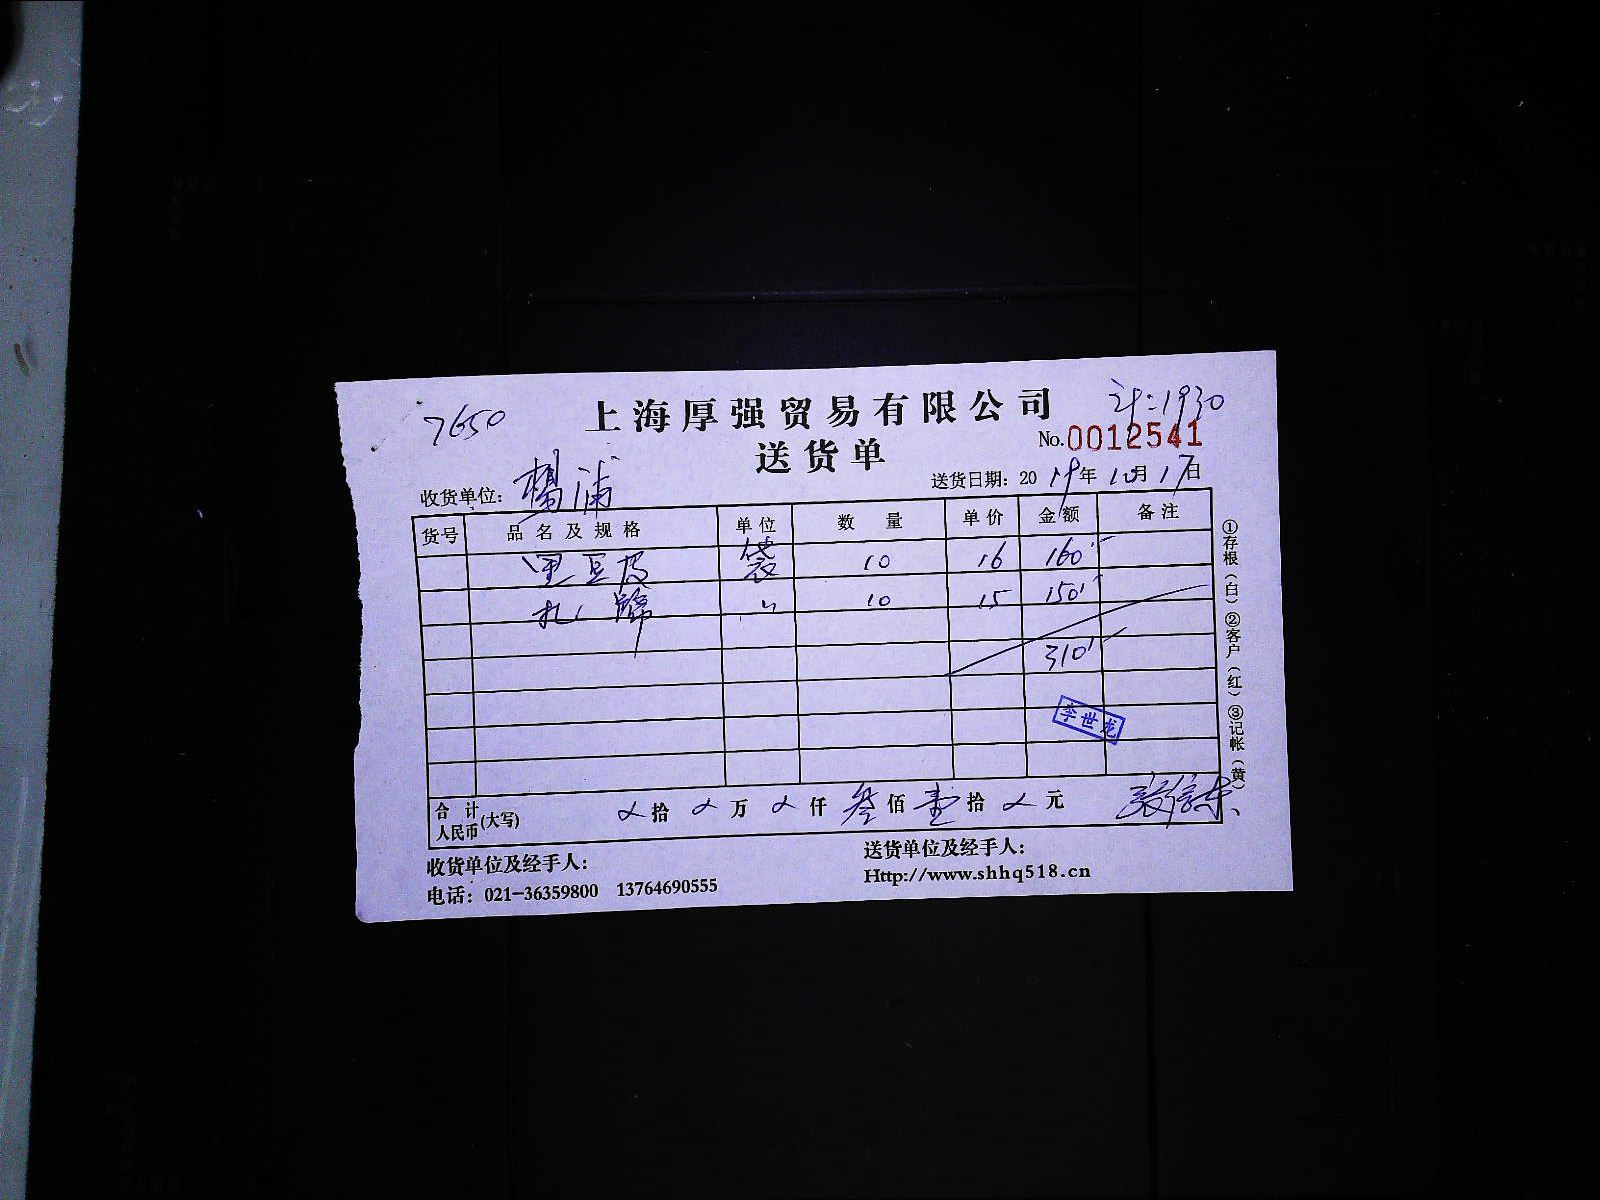 7650
上海厚强贸易有限公司
计:1930
No.0012541
送货单
收货单位: 楊浦
送货日期: 2019年10月17日
货号 品名及规格 单位 数量 单价 金额 备注
黑豆皮 袋 10 16 160
扎 〃 10 15 150
310
李世龙
合计人民币(大写) 拾 万 仟 叁佰 壹拾 元
收货单位及经手人:
送货单位及经手人:
电话: 021-36359800 13764690555
Http://www.shhq518.cn
①存根(白)②客户(红)③记帐(黄)